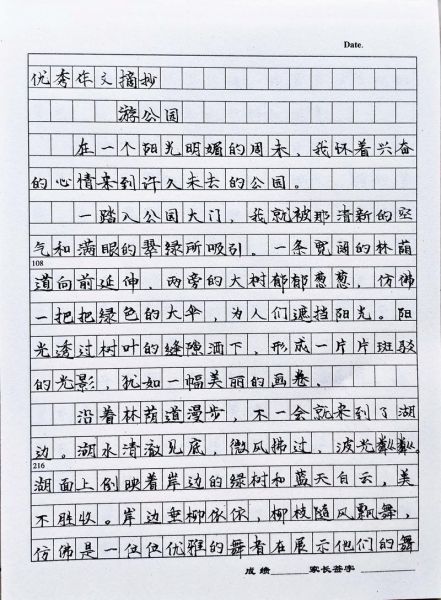 Date.
优秀作文摘抄
游公园
在一个阳光明媚的周末，我怀着兴奋
的心情来到许久未去的公园。
一踏入公园大门，我就被那清新的空
气和满眼的翠绿所吸引。一条宽阔的林荫
108
道向前延伸，两旁的大树郁郁葱葱，仿佛
一把把绿色的大伞，为人们遮挡阳光。阳
光透过树叶的缝隙洒下，形成一片片斑驳
的光影，犹如一幅美丽的画卷。
沿着林荫道漫步，不一会就来到了湖
边。湖水清澈见底，微风拂过，波光粼粼。
216
湖面上倒映着岸边的绿树和蓝天白云，美
不胜收。岸边垂柳依依，柳枝随风飘舞，
仿佛是一位位优雅的舞者在展示他们的舞
成绩 家长签字